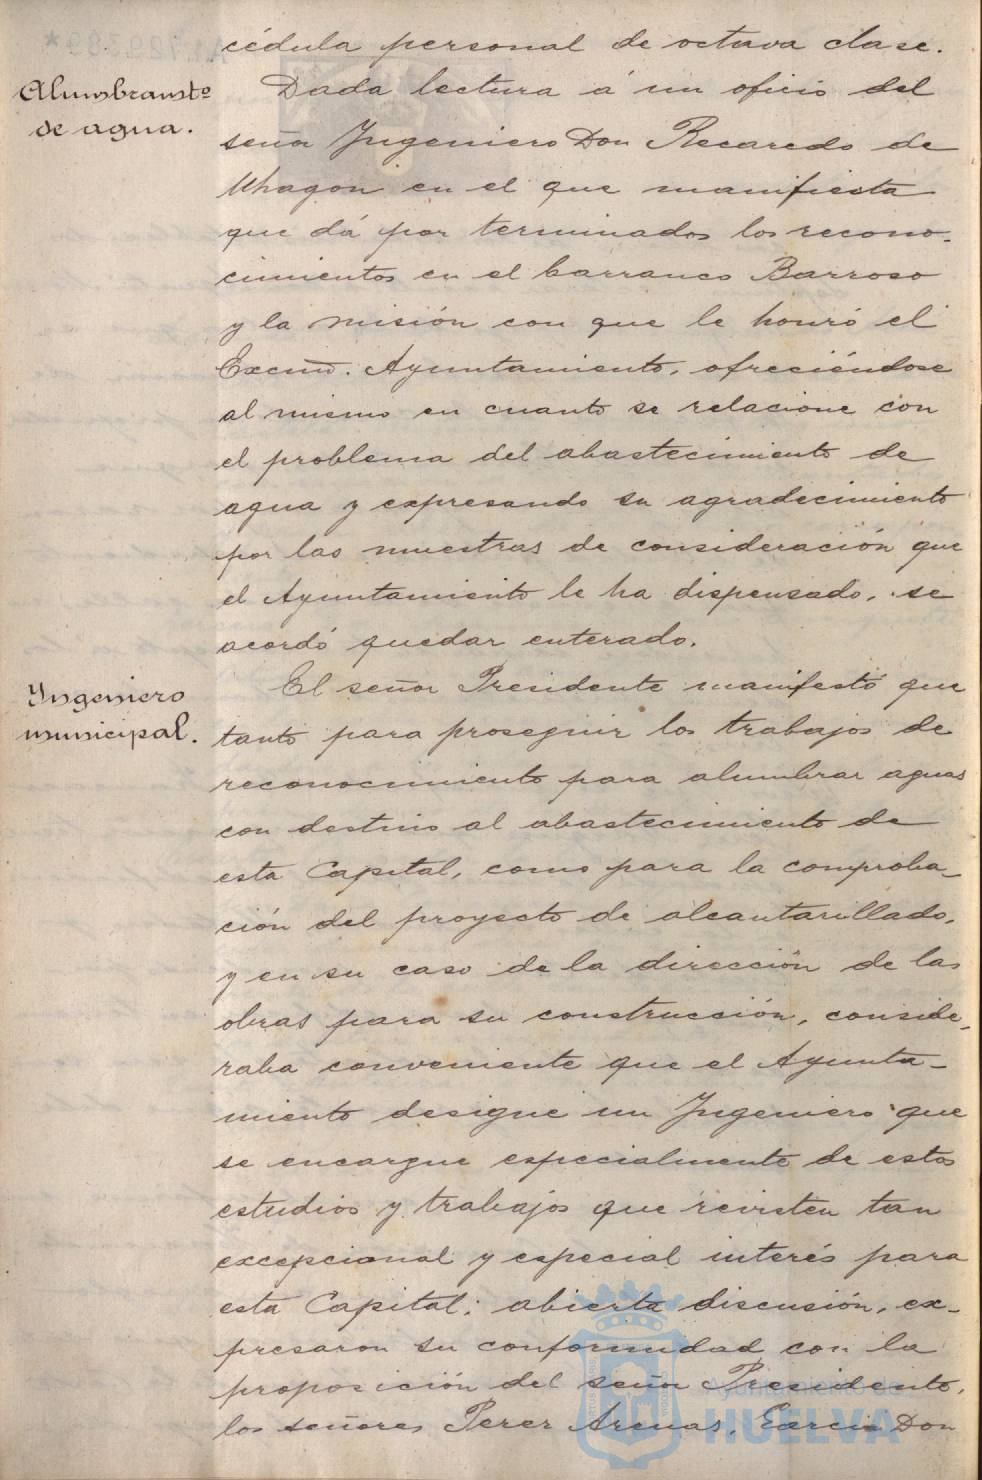 cédula personal de octava clase.
Alumbramtº
de agua.
Dada lectura á un oficio del
señor Yngeniero Don Recaredo de
Uhagon en el que manifiesta
que dá por terminados los recono-
cimientos en el barranco Barroso
y la misión con que le honró el
Excmo. Ayuntamiento, ofreciéndose
al mismo en cuanto se relacione con
el problema del abastecimiento de
agua y expresando su agradecimiento
por las muestras de consideración que
el Ayuntamiento le ha dispensado, se
acordó quedar enterado.
Yngeniero
municipal.
El señor Presidente manifestó que
tanto para proseguir los trabajos de
reconocimiento para alumbrar aguas
con destino al abastecimiento de
esta Capital, como para la comproba-
ción del proyecto de alcantarillado,
y en su caso de la dirección de las
obras para su construcción, conside-
raba conveniente que el Ayunta-
miento designe un Yngeniero que
se encargue especialmente de estos
estudios y trabajos que revisten tan
excepcional y especial interés para
esta Capital; abierta discusión, ex-
presaron su conformidad con la
proposición del señor Presidente,
los señores Perez Arenas, Garcia Don
Ayuntamiento de
HUELVA